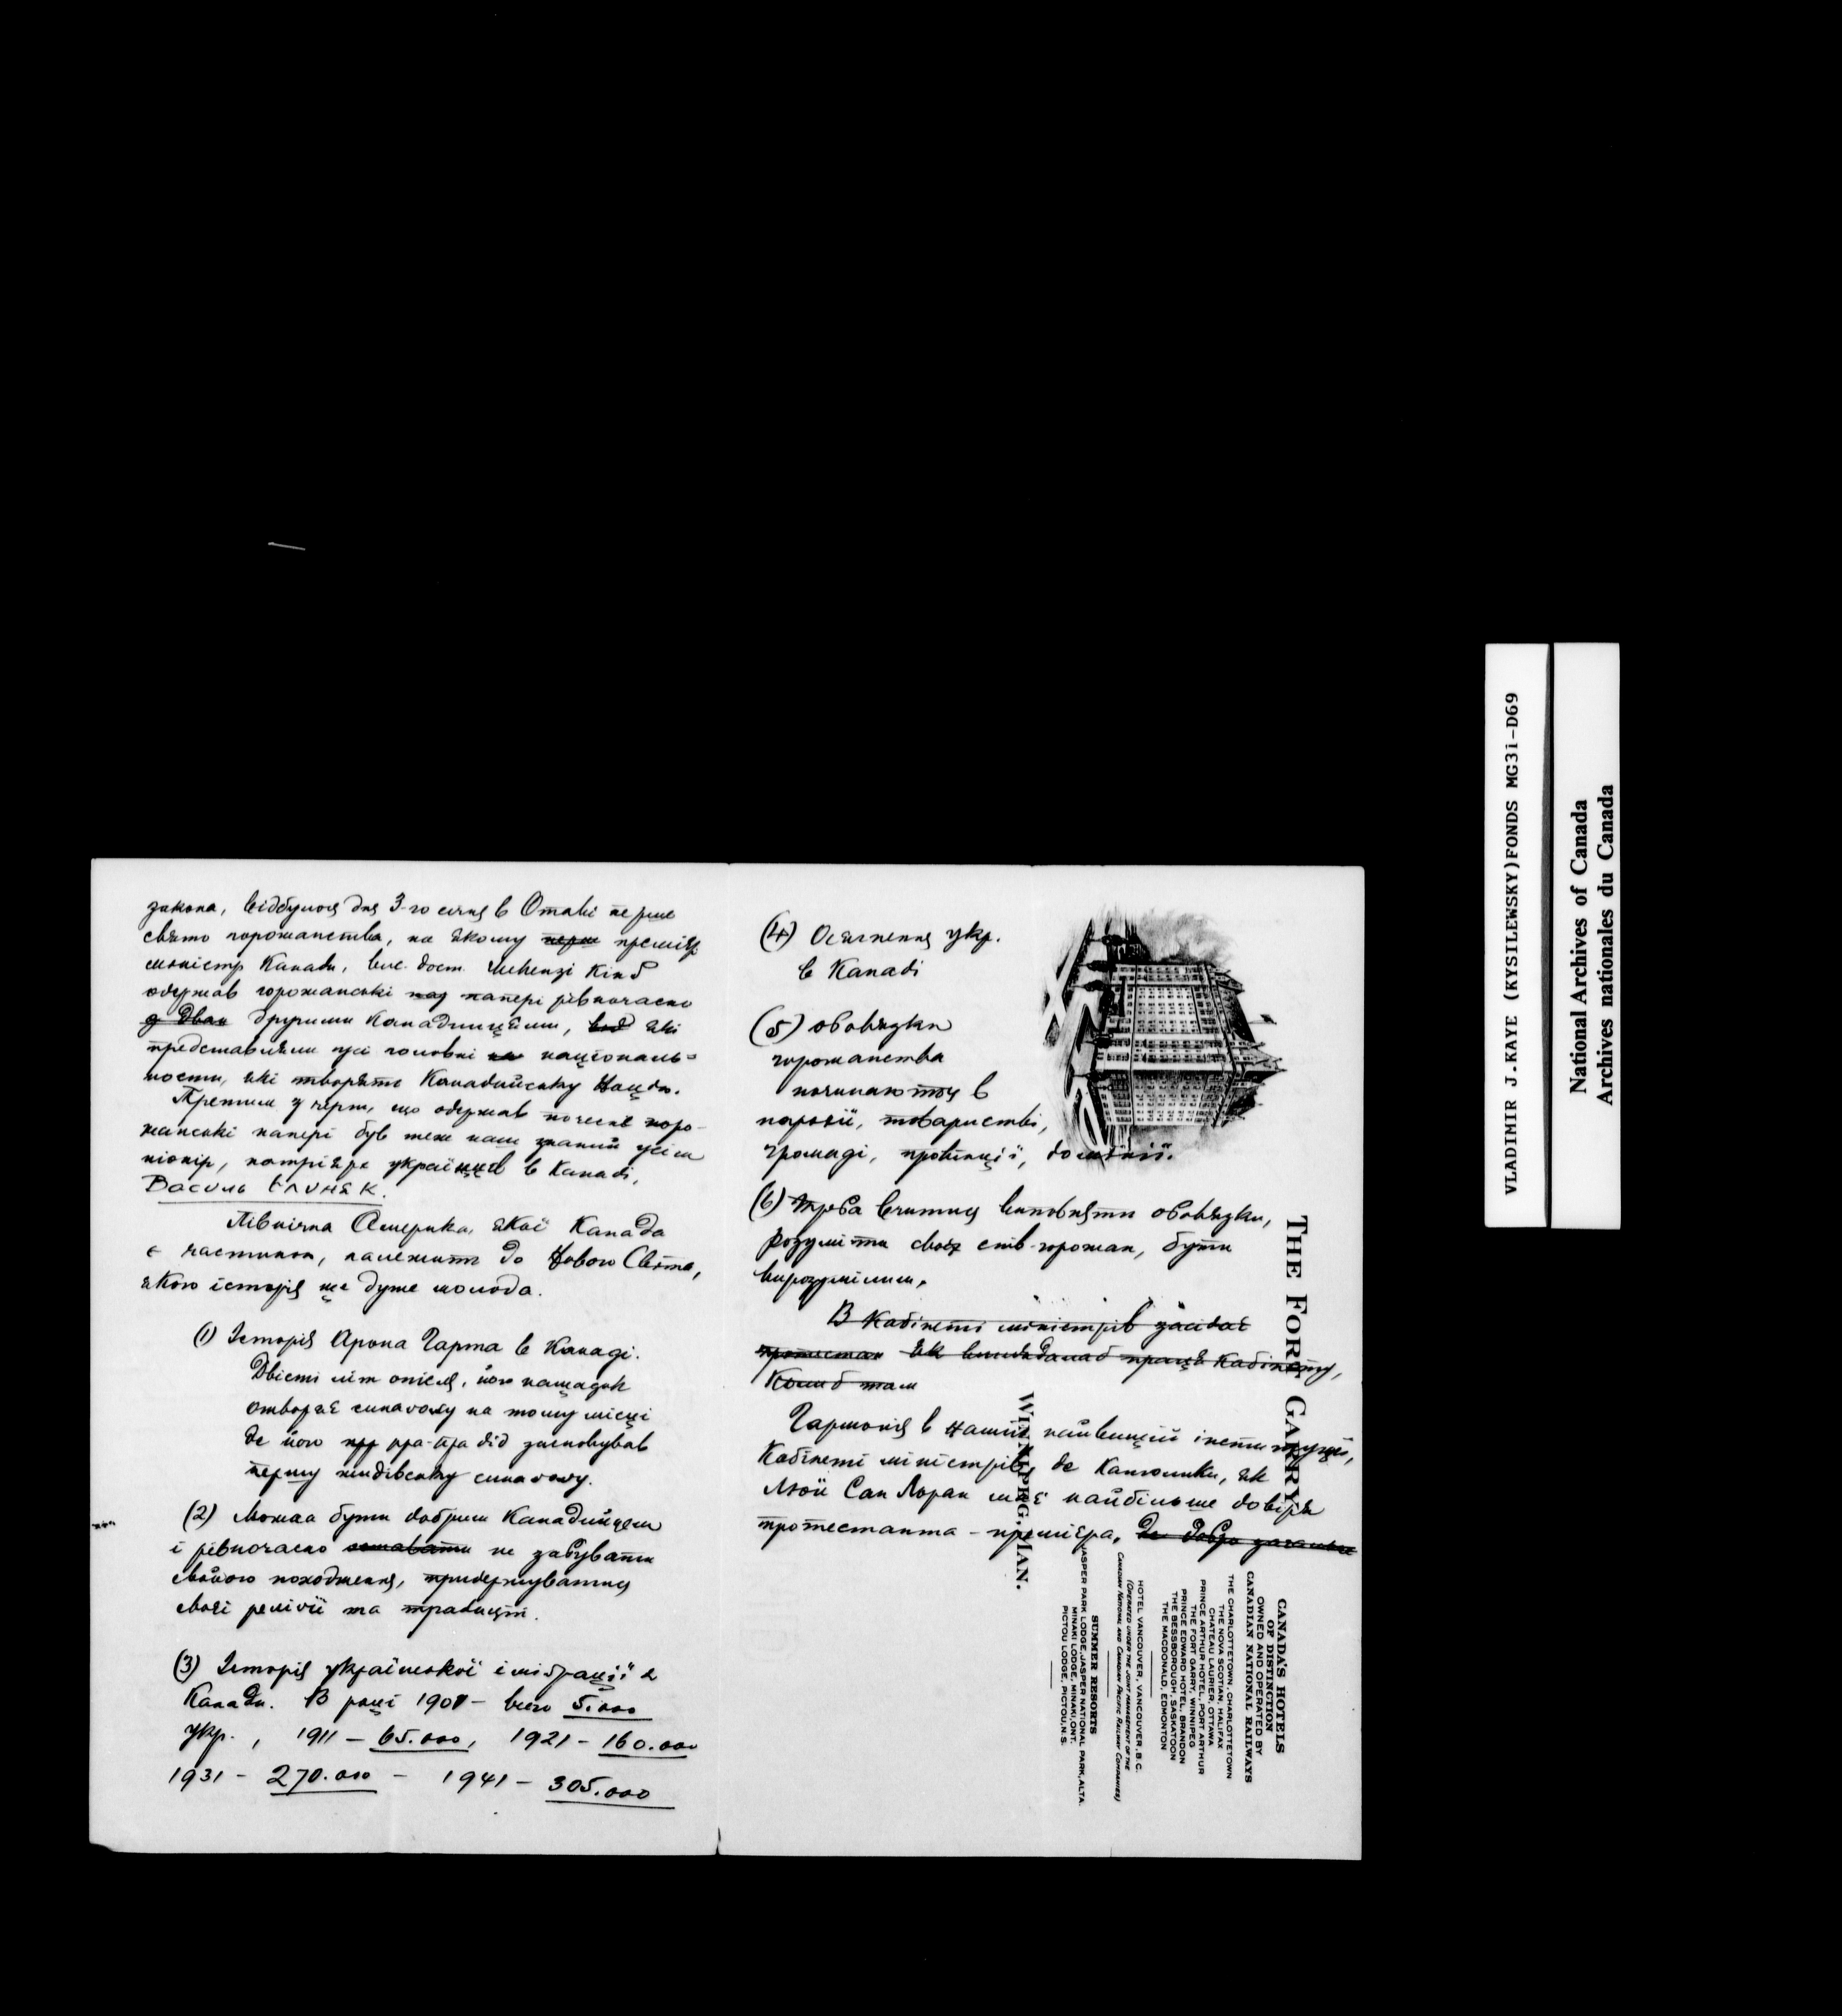 закона, відбулося дня 3-го січня в Отаві перше
свято горожанства, на якому перш премієр
міністр Канади, вис. дост. Мекензі Кінґ
одержав горожанські пап папері рівночасно
з дван другими Канадийцями, від які
представляли усі головні на національ-
ности, які творять Канадийську Націю.
Третим з черги, що одержав почесні горо-
жанські папері був теж наш знаний усім
піонір, патріярх українців в Канаді,
Василь Єлиняк.
Північна Америка, якої Канада
є частиною, належить до Нового Світа,
якого історія ще дуже молода.
(1) Історія Арона Гарта в Канаді.
Двісті літ опісля, його нащадок
отворяє синаґоґу на тому місці
де його пра-пра дід засновував
першу жидівську синаґоґу.
(2) Можна бути добрим Канадийцем
і рівночасно не забувати
свойого походження, придержуватися
своєї релігії та традиції.
(3) Історія української іміґрації з
Канади. В році 1901 – всего 5.000
укр., 1911 – 65.000, 1921 – 160.000
1931 – 270.000 – 1941 – 305.000
(4) Осягнення укр.
в Канаді
(5) обовязки
горожанства
починаються в
парохії, товаристві,
громаді, провінції, домінії.
(6) Треба вчитися виповняти обовязки,
розуміти своїх спів-горожан, бути
вирозумілим.
В Кабінеті міністрів засідає
протестан як виглядалаб праця Кабінету,
Колиб там
Гармонія в нашій найвищій інституції,
Кабінеті міністрів, де Католики, як
Люй Сан Лоран має найбільше довіря
протестанта – премієра, де добро загальне
THE FORT GARRY
WINNIPEG, MAN.
CANADA'S HOTELS
OF DISTINCTION
OWNED AND OPERATED BY
CANADIAN NATIONAL RAILWAYS
THE CHARLOTTETOWN, CHARLOTTETOWN
THE NOVA SCOTIAN, HALIFAX
CHATEAU LAURIER, OTTAWA
PRINCE ARTHUR HOTEL, PORT ARTHUR
THE FORT GARRY, WINNIPEG
PRINCE EDWARD HOTEL, BRANDON
THE BESSBOROUGH, SASKATOON
THE MACDONALD, EDMONTON
HOTEL VANCOUVER, VANCOUVER, B.C.
(OPERATED UNDER THE JOINT MANAGEMENT OF THE
CANADIAN NATIONAL AND CANADIAN PACIFIC RAILWAY COMPANIES)
SUMMER RESORTS
JASPER PARK LODGE, JASPER NATIONAL PARK, ALTA.
MINAKI LODGE, MINAKI, ONT.
PICTOU LODGE, PICTOU, N.S.
VLADIMIR J.KAYE (KYSILEWSKY)FONDS MG31-D69
National Archives of Canada
Archives nationales du Canada